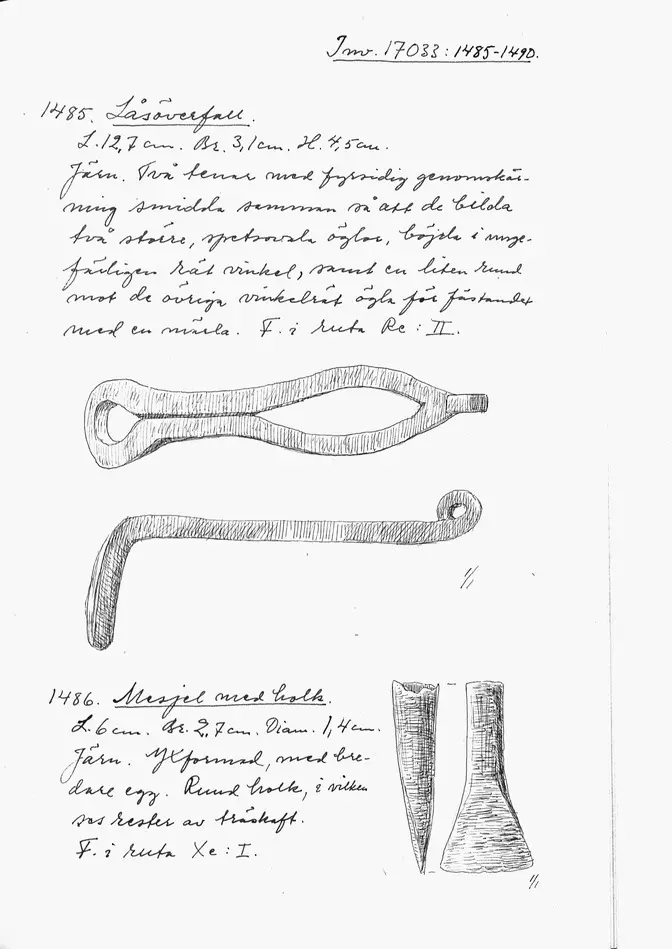 Inv. 17033: 1485-1490.
1485. Låsöverfall.
L. 12,7 cm. Br. 3,1 cm. H. 4,5 cm.
Järn. Två tenar med fyrsidig genomskär-
ning smidda samman så att de bilda
två större, spetsovala öglor, böjda i unge-
färligen rät vinkel, samt en liten rund
mot de övriga vinkelrät ögla för fästandet
med en märla. F. i ruta Rc: II.
1/1
1486. Mejsel med holk.
L. 6 cm. Br. 2,7 cm. Diam. 1,4 cm.
Järn. Yxformad, med bre-
dare egg. Rund holk, i vilken
ses rester av träskaft.
F. i ruta Xc: I.
1/1